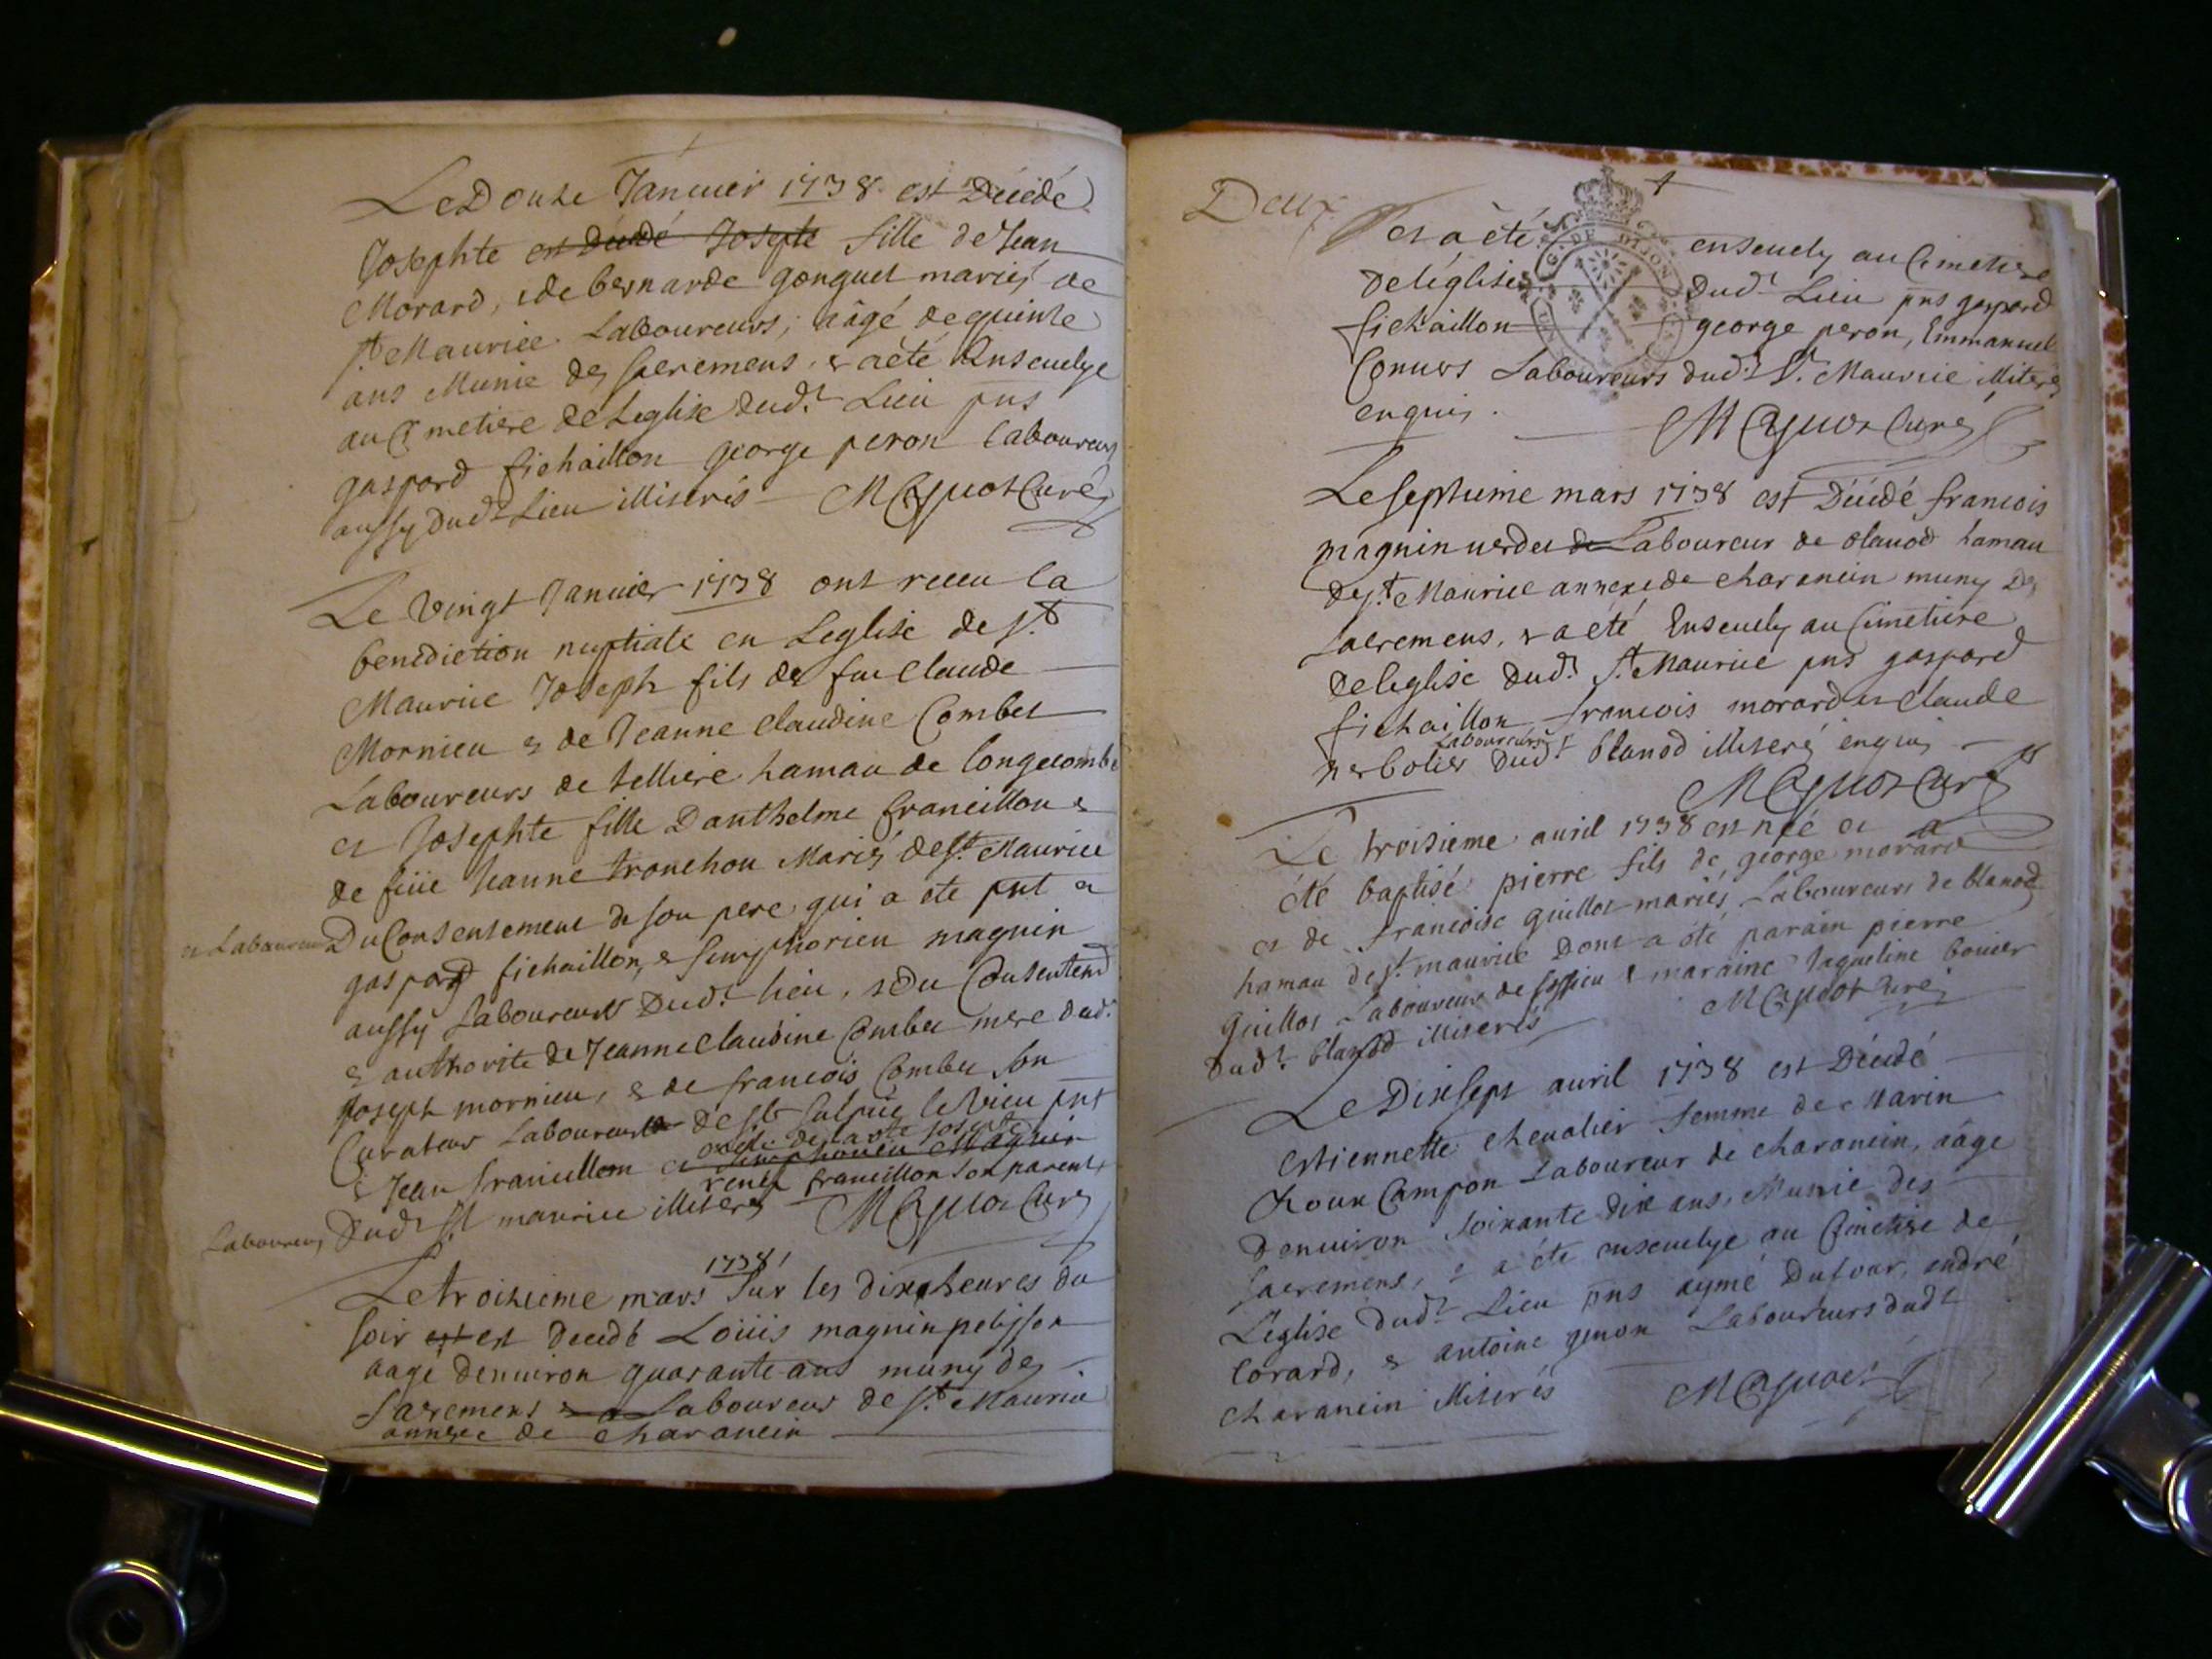 Le Douze Januier 1738 est Décédé
Josephte est Décédé Josepte fille de Jean
Morard, & de bernarde gonguet mariés de
St. Maurice Laboureurs, aâgé de quinze
ans Munie des sacremens, & a été Enseuelye
au Cimetiere de Leglise dud.t Lieu pns
gaspard fichaillon george peron laboureurs
aussy dud.t Lieu illiterés
Curé
Le vingt Januier 1738 ont receu la
benediction nuptiale en Leglise de St.
Maurice Joseph fils de fue Claude
Mornieu & de Jeanne Claudine Combet
Laboureurs de hamau de longecombe
et Josephte fille Danthelme francillon &
de füe Jeanne tronchon Mariés de St. Maurice
et Laboureurs Du Consentement de son pere qui a ete pnt et
gaspard fichaillon, & simphorien magnin
aussy Laboureurs Dud.t lieu, & du Consentemt
& authorite de Jeanne Claudine Combet mere dud.t
Joseph mornieu, & de francois Combet son
Curateur Laboureur de St Sulpice le vieu pnt
& Jean francillon oncle de lad.te Josepte
et Simphorien Magnin
renez francillon son parent
Laboureurs Dud.t St maurice illiterés
Curé
1738
Le troisieme mars Sur les dix heures du
soir est est Decedé Loüis magnin pelisson
aagé denuiron quarante ans muny des
Sacremens & a Laboureur de St. Maurice
annexe de charancin
Deux
et a été enseuely au Cimetiere
de léglise Dud.t Lieu pns gaspard
fichaillon george peron, Emmanuel
Laboureurs dud.t St. Maurice illiterés
enquis.
Curé
Le septieme mars 1738 est Décédé francois
magnin verdet de Laboureur de blanod hamau
de St. Maurice annexe de charancin muny des
sacremens, & a été Enseuely au Cimetiere
de leglise dud.t St. Maurice pns gaspard
fichaillon francois morard et Claude
Laboureurs
Dud.t blanod illiteré enquis
Curé
Le troisieme auril 1738 est née et a
été baptisé pierre fils de george morard
et de francoise guillot mariés Laboureurs de blanod
hamau de St. maurice Dont a été parain pierre
guillot Laboureur de & maraine Jaqueline bouier
Dud.t blanod illiterés
Curé
Le Dix sept auril 1738 est Décédé
Estiennette cheualier femme de Marin
Roux Campon Laboureur de charancin, aâge
Denuiron soixante dix ans, Munie des
sacremens, & a été enseuelye au Cimetiere de
L'eglise Dud.t Lieu pns aymé Dufour, andré
lorard, & antoine genon Laboureurs dud.t
charancin illiterés